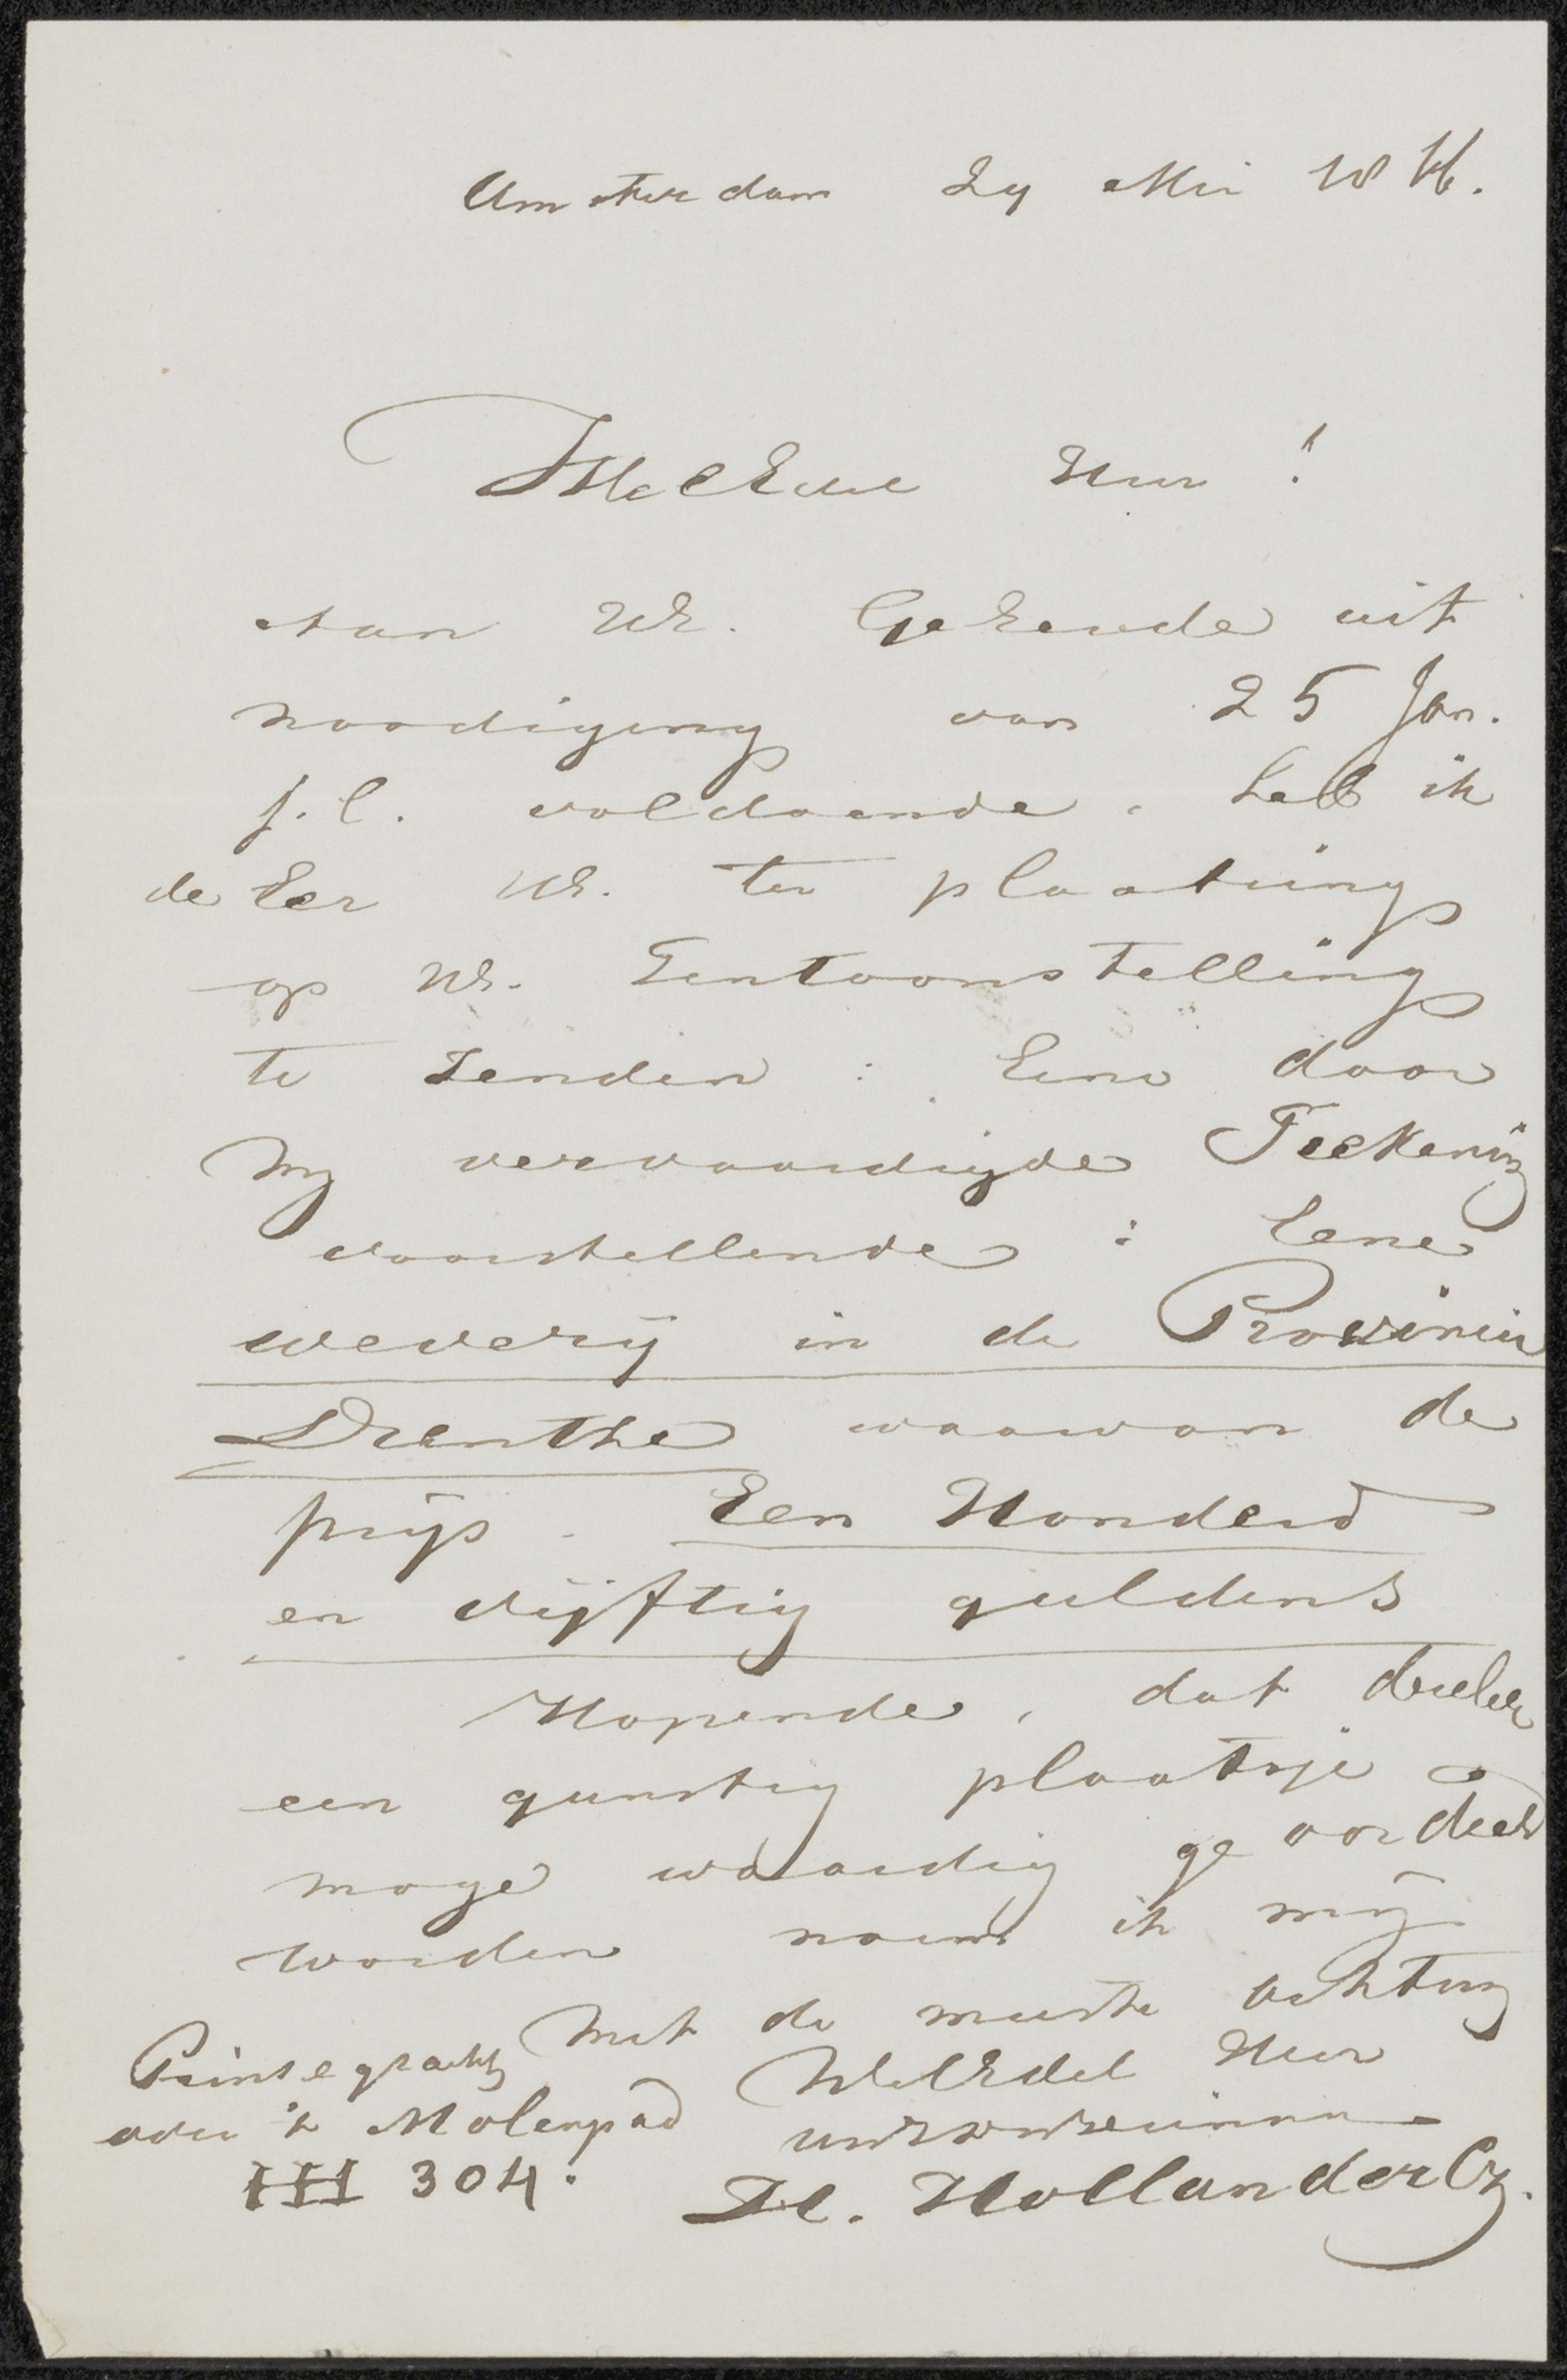 Amsterdam 29 Mei
WelEdele Heer!
Aan UE. Geëerde uit
noodiging van 25 Jan.
j.l. voldoende, heb ik
de Eer UE. ter plaatsing
op UE. Tentoonstelling
te zenden : Eene door
My vervaardigde Teekening
voorstellende : Eene
weverij in de Provincie
Drenthe waarvan de
prijs Een Honderd
en vijftig guldens
Hopende, dat dezelve
een gunstig plaatsje
moge waardig geoordeeld
worden noem ik mij
Met de meeste achting
WelEdel Heer
H. Hollander Cz.
Prinsegracht
over 't Molenpad
III 304.